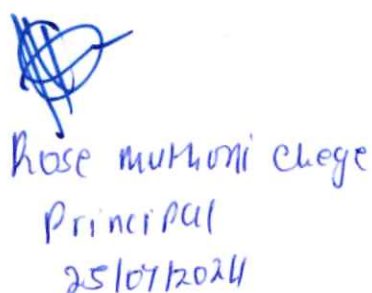 Rose muthoni chege
Principal
25/07/2024